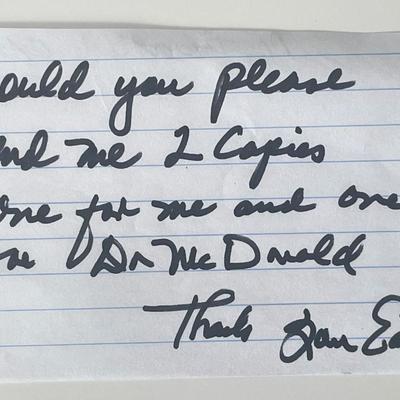 ould you please
nd me 2 Copies
one for me and one
Dr McDonald
Thanks